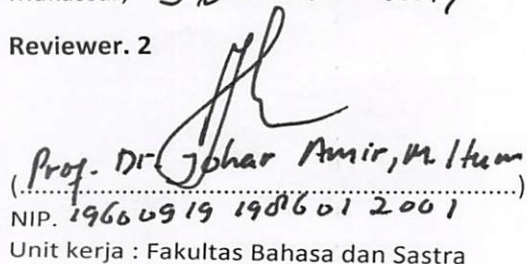 Reviewer. 2
(Prof. Dr. Johar Amir, M. Hum)
NIP. 19600919 198601 2001
Unit kerja : Fakultas Bahasa dan Sastra